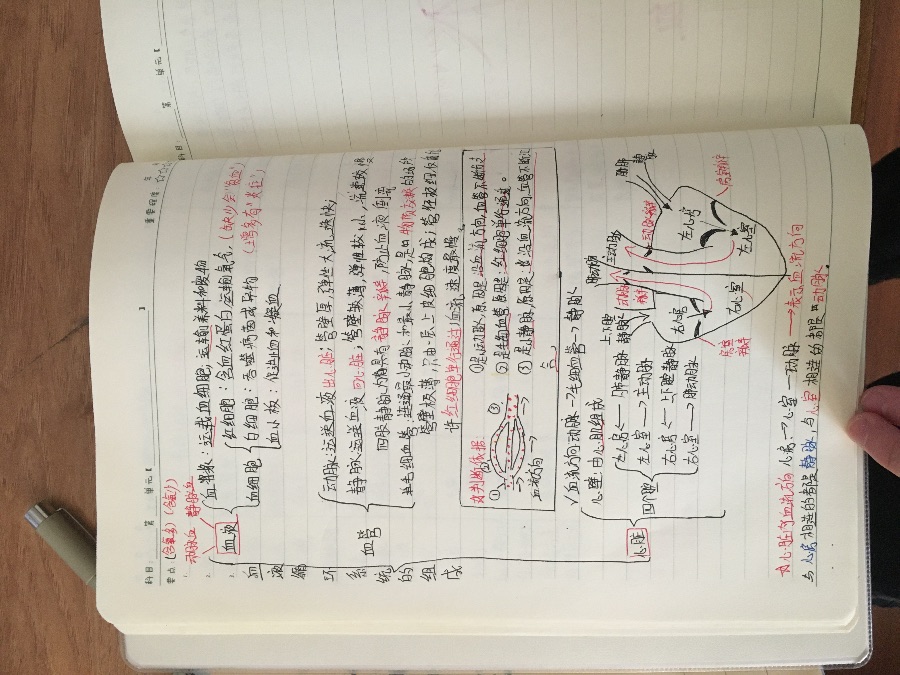 科目：
第 单元
重要程度
要点：(含氧多) (含氧少)
动脉血 静脉血
血液循环系统的组成
血液
血浆：运载血细胞，运输养料和废物
血细胞
红细胞：含血红蛋白运输氧气。(缺少会"贫血")
白细胞：吞噬病菌或异物 (增多有"炎症")
血小板：促进止血和凝血
血管
动脉：运送血液出心脏；管壁厚，弹性大，流速快，
静脉：运送血液回心脏，管壁较薄，弹性较小，流速较慢
四肢静脉内常具有静脉瓣膜，防止血液倒流
毛细血管：连通最小动脉和最小静脉，是物质交换的场所
管壁极薄，只由一层上皮细胞构成；管径极细，只
许红细胞单行通过；血流速度最慢。
判断依据：
① ② ③
血流方向→
①是小动脉，原因是沿血流方向，血管不断分支
②是毛细血管，原因是：红细胞单行通过。
③是小静脉，原因是：沿血流方向，血管不断汇
合
血流方向 动脉→毛细血管→静脉
心脏
心壁 由心肌组成
四个腔
左心房←肺静脉
左心室→主动脉
右心房←上下腔静脉
右心室→肺动脉
上下腔静脉
肺动脉
主动脉
肺静脉
动脉瓣
动脉瓣
左心房
左心室
右心房
右心室
房室瓣
房室瓣
心脏内血流方向 心房→心室→动脉 →表示血流方向
与心房相连的都是静脉，与心室相连的都是动脉
第 单元
科目：